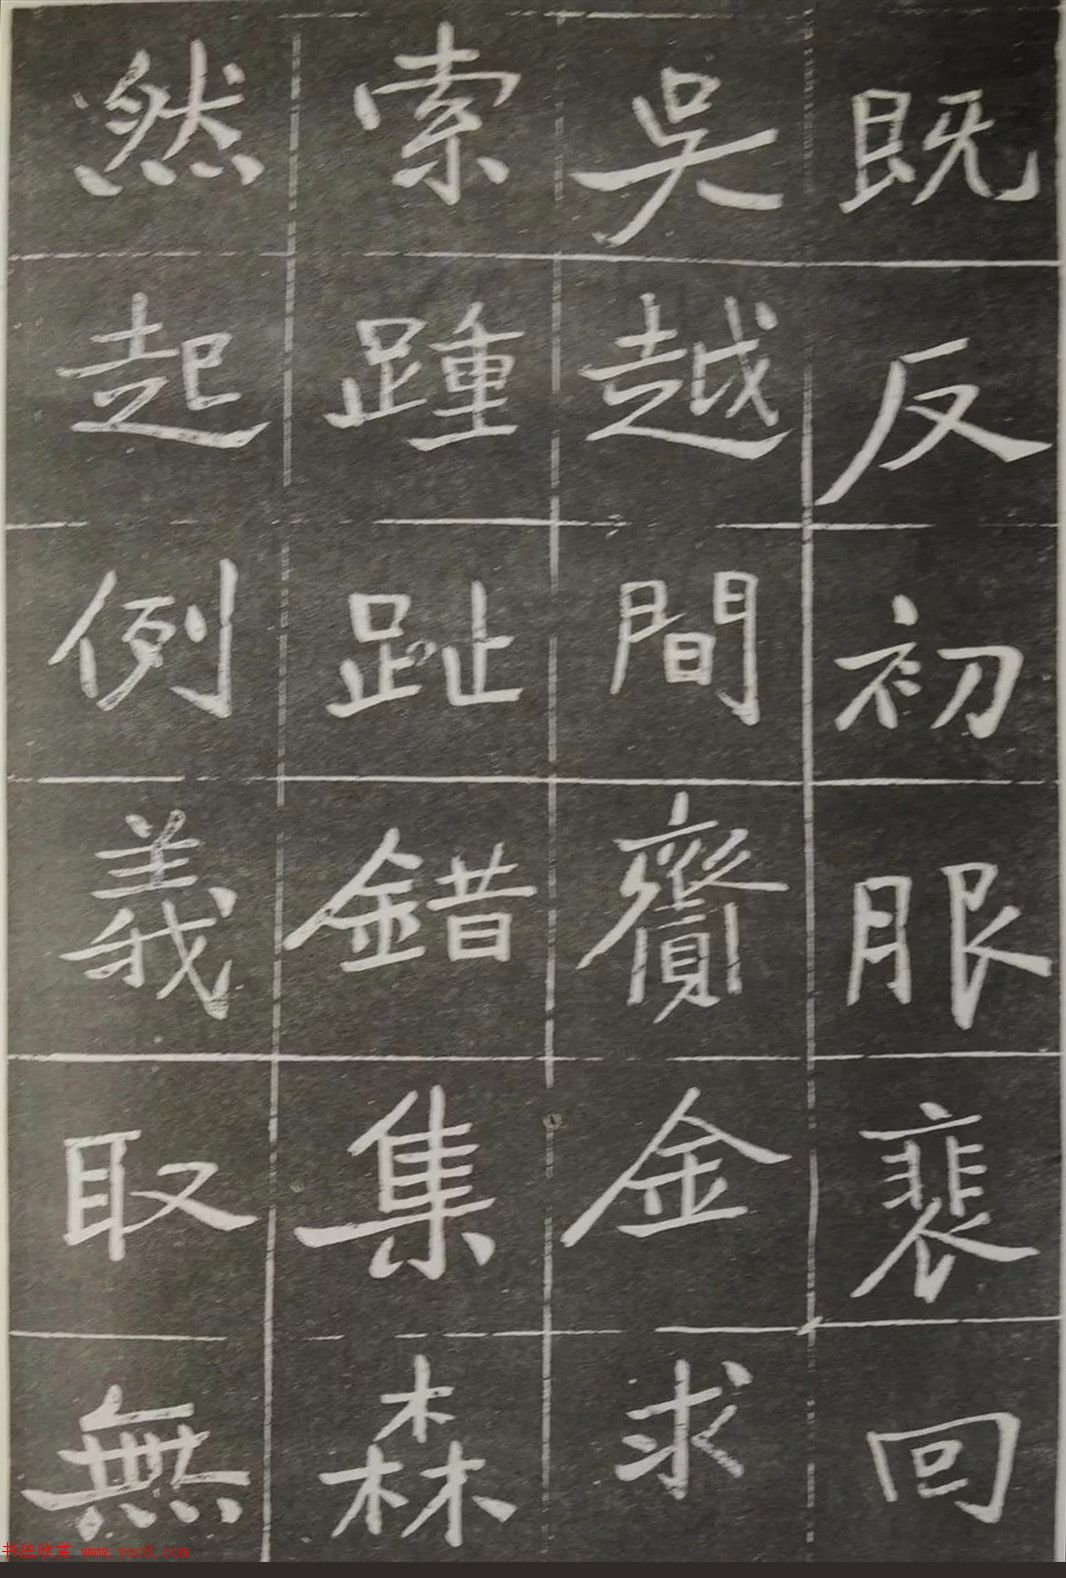 既反初服裴回
吳越間齎金求
索踵趾錯集森
然起例義取無
书法欣赏 www.yac8.com